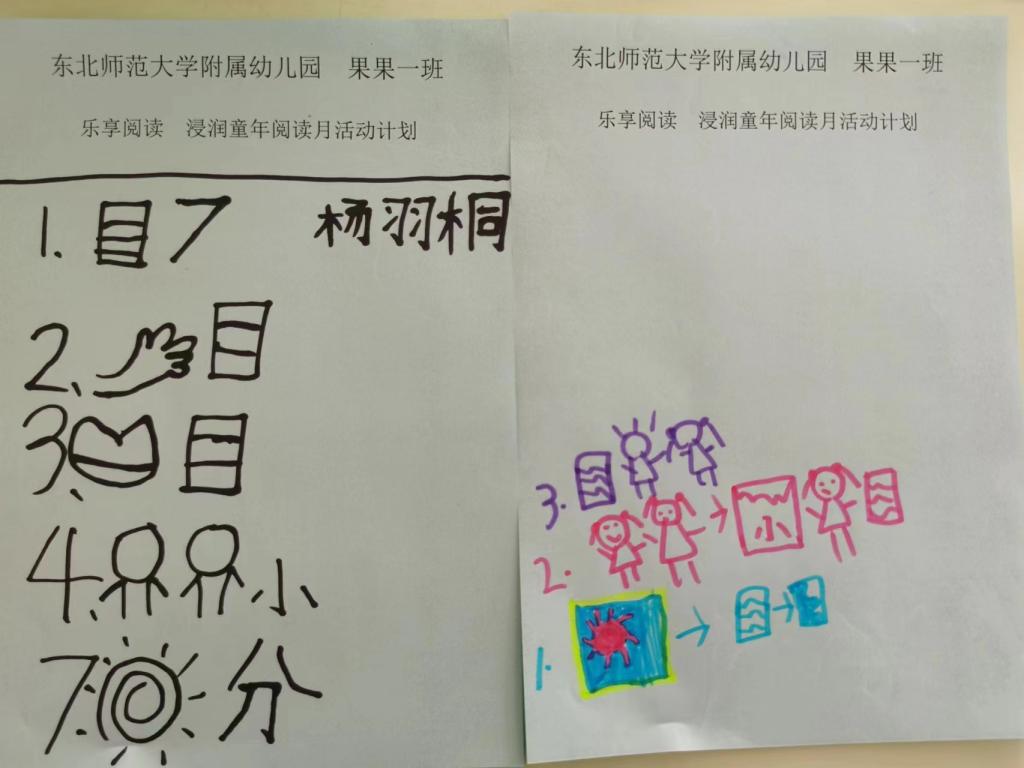 东北师范大学附属幼儿园 果果一班
乐享阅读 浸润童年阅读月活动计划
1. 目 7 杨羽桐
2、
3、
4、小
7. 分
东北师范大学附属幼儿园 果果一班
乐享阅读 浸润童年阅读月活动计划
3.
2. 小
1.